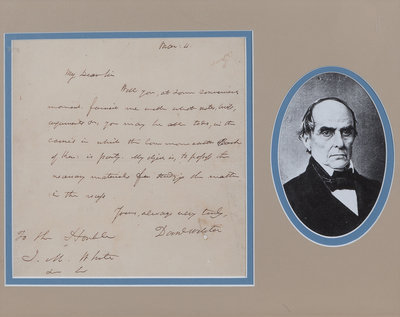 Mar. 4.
My dear Sir
Will you, at some convenient
moment, furnish me with what notes,
arguments &c, you may be able to, in the
causes in which the Commonwealth Bank
of is party. My object is, to
necessary materials for the matter
in the recess
Yours, always very truly,
Danl Webster
To the Honble
J. M.